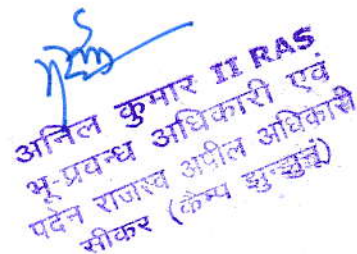 अनिल कुमार II RAS
भू-प्रवन्ध अधिकारी एवं
पदेन राजस्व अपील अधिकारी
सीकर (कैम्प झुन्झुनूं)